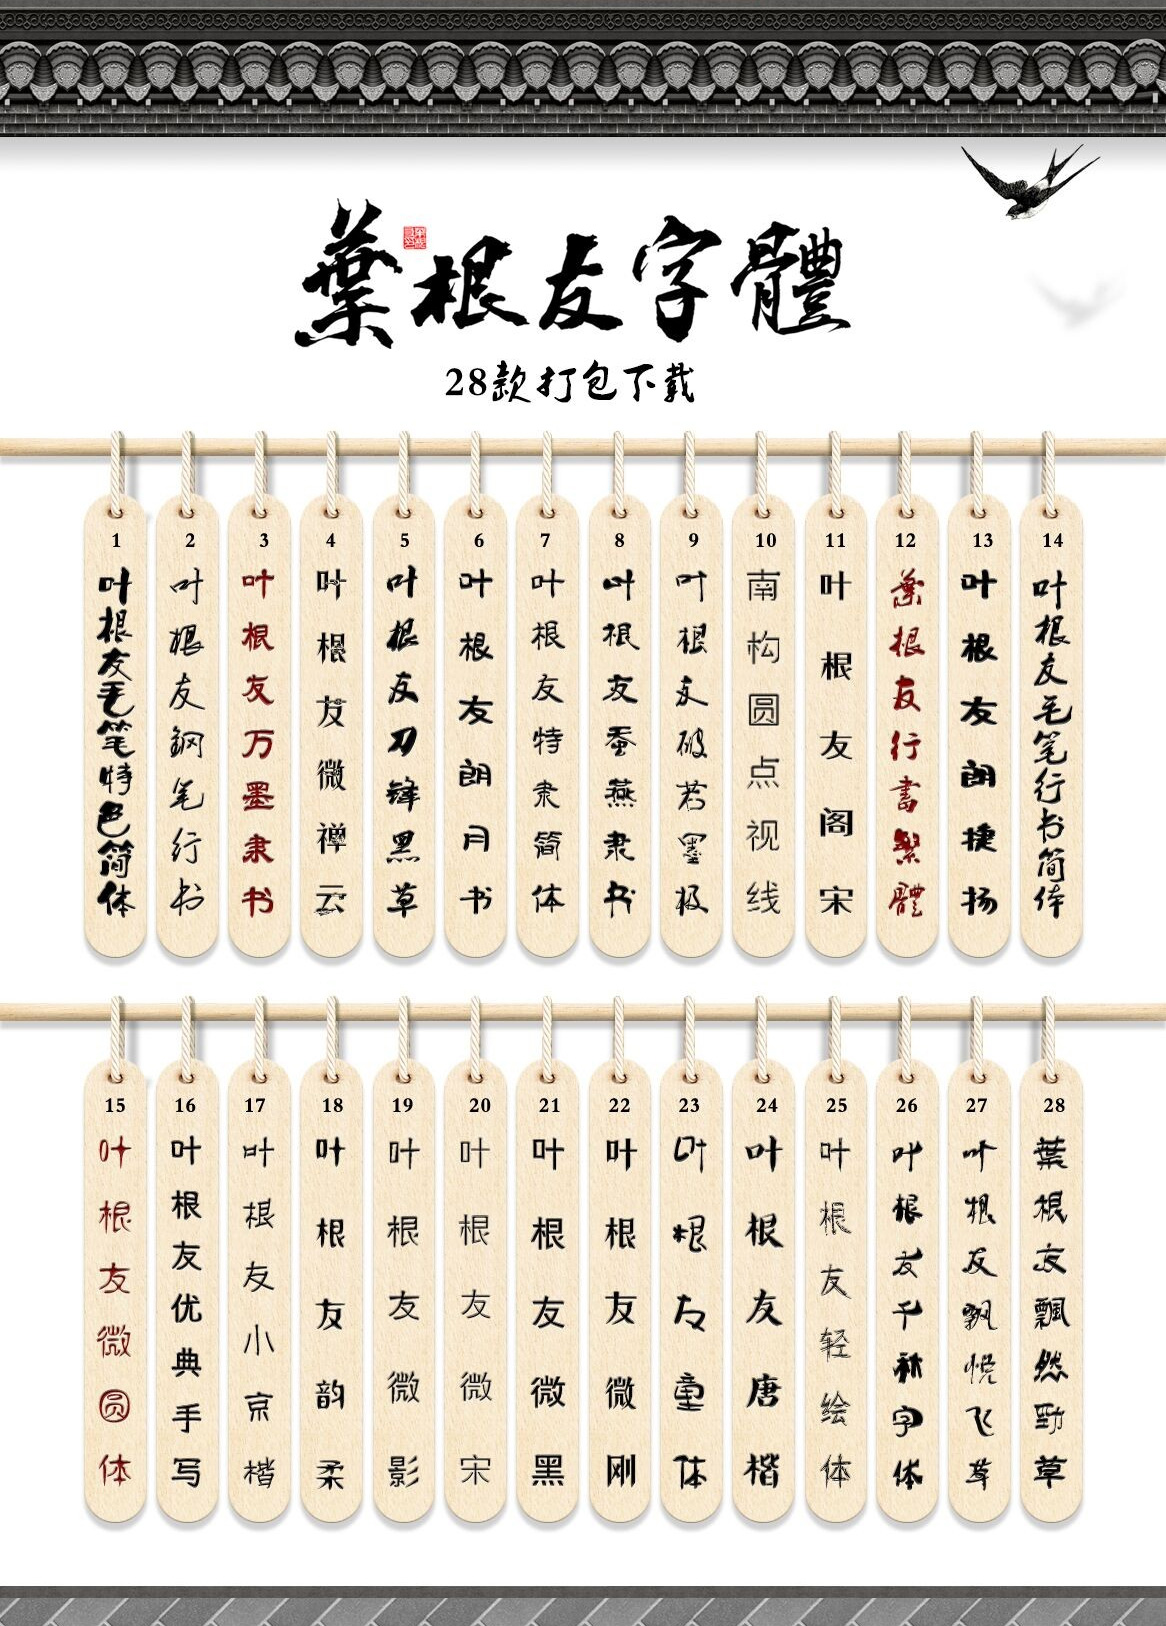 葉根友字體
28款打包下载
1
叶根友毛笔特色简体
2
叶根友钢笔行书
3
叶根友万墨隶书
4
叶根友微禅云
5
叶根友刀锋黑草
6
叶根友朗月书
7
叶根友特隶简体
8
叶根友蚕燕隶书
9
叶根友破若墨极
10
南构圆点视线
11
叶根友阁宋
12
葉根友行書繁體
13
叶根友朗捷扬
14
叶根友毛笔行书简体
15
叶根友微圆体
16
叶根友优典手写
17
叶根友小京楷
18
叶根友韵柔
19
叶根友微影
20
叶根友微宋
21
叶根友微黑
22
叶根友微刚
23
叶根友童体
24
叶根友唐楷
25
叶根友轻绘体
26
叶根友千秋字体
27
叶根友飘悦飞草
28
葉根友飄然勁草